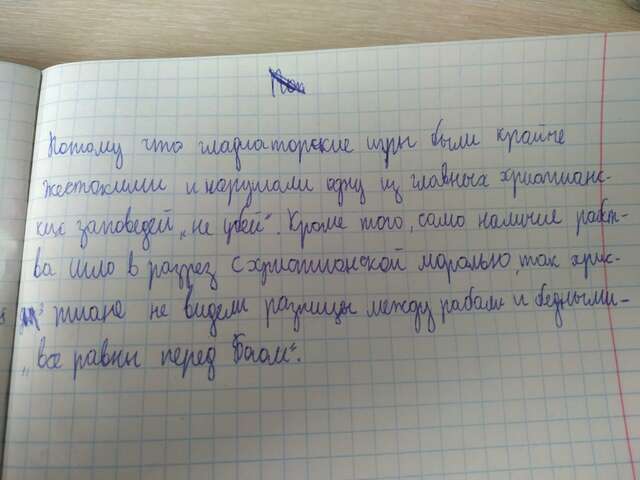 Потому что гладиаторские игры были крайне
жестокими и нарушали одну из главных христианс-
ких заповедей „не убей". Кроме того, само наличие рабст-
ва шло в разрез с христианской моралью, так хрис-
тиане не видели разницы между рабами и бедными -
„все равны перед Богом".